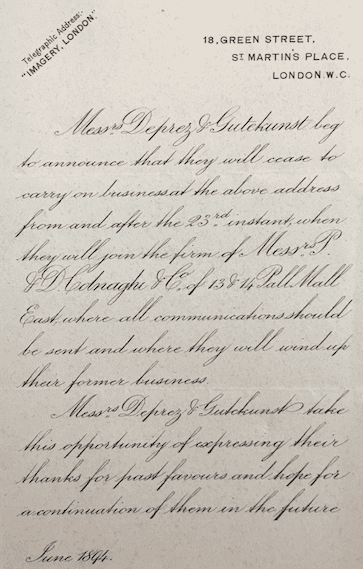 Telegraphic Address:-
"IMAGERY, LONDON."
18, GREEN STREET,
ST MARTIN'S PLACE,
LONDON. W.C.
Messrs Deprez & Gutekunst beg
to announce that they will cease to
carry on business at the above address
from and after the 23rd instant, when
they will join the firm of Messrs P.
& D. Colnaghi & Co. of 13 & 14 Pall Mall
East, where all communications should
be sent and where they will wind up
their former business.
Messrs Deprez & Gutekunst take
this opportunity of expressing their
thanks for past favours and hope for
a continuation of them in the future
June 1894.